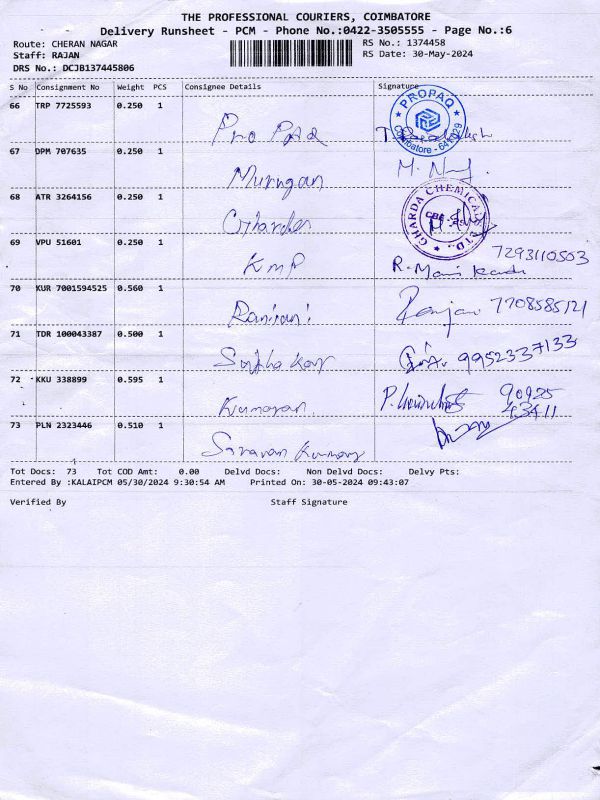 THE PROFESSIONAL COURIERS, COIMBATORE
Delivery Runsheet - PCM - Phone No.:0422-3505555 - Page No.:6
Route: CHERAN NAGAR
RS No.: 1374458
Staff: RAJAN
RS Date: 30-May-2024
DRS No.: DCJB137445806
S No Consignment No Weight PCS Consignee Details Signature
66 TRP 7725593 0.250 1 Pro PAQ
PROPAQ
Coimbatore - 641029
67 DPM 707635 0.250 1 Murugan
68 ATR 3264156 0.250 1 Gharda
GHARDA CHEMICALS LTD.
69 VPU 51601 0.250 1 KMP R. Mani 7293110503
70 KUR 7001594525 0.560 1 Ranjani Ranjani 7708585121
71 TDR 100043387 0.500 1 9952337133
72 KKU 338899 0.595 1 Kumaran 90925
43411
73 PLN 2323446 0.510 1 Saravan Kumar
Tot Docs: 73 Tot COD Amt: 0.00 Delvd Docs: Non Delvd Docs: Delvy Pts:
Entered By :KALAIPCM 05/30/2024 9:30:54 AM Printed On: 30-05-2024 09:43:07
Verified By Staff Signature